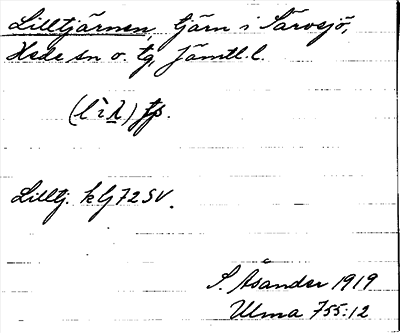 Lilltjärnen, tjärn i Särvsjö,
Hede sn o. tg, Jämtl. l.
Lilltj. k Lj 72 SV.
S. Åsander 1919
Ulma 755:12